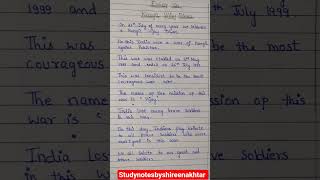 Essay on
Kargil Vijay Diwas
On 26th July of every year we celebrate
Kargil Vijay Diwas.
In this India won a war of Kargil
against Pakistan.
This war was started on 3rd May
1999 and ended on 26th July 1999.
This was considered to be the most
courageous war.
The name of the mission of this
war is "Vijay"
India lost many brave soldiers
in this war.
On this day, Indians pay tribute
to all brave soldiers who were
We all salute to our great and
brave soldiers.
1999 and
July 1999.
This was
be the most
courageous
The name
ssion of this
war is "
India Los
soldiers
in this
Studynotesbyshireenakhtar